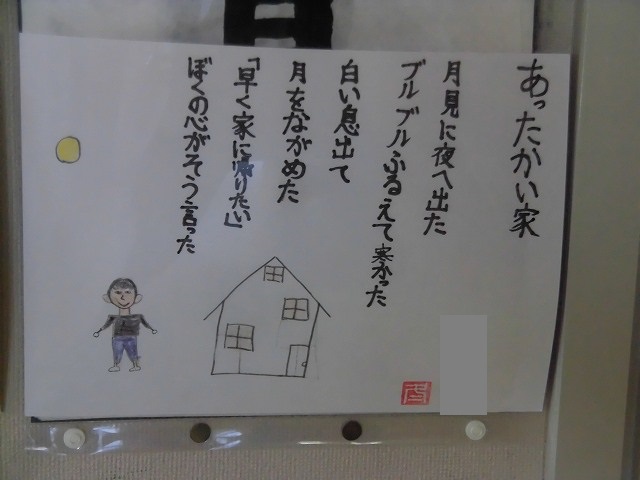 あったかい家
月見に夜へ出た
ブルブルふるえて寒かった
白い息出て
月をながめた
「早く家に帰りたい」
ぼくの心がそう言った